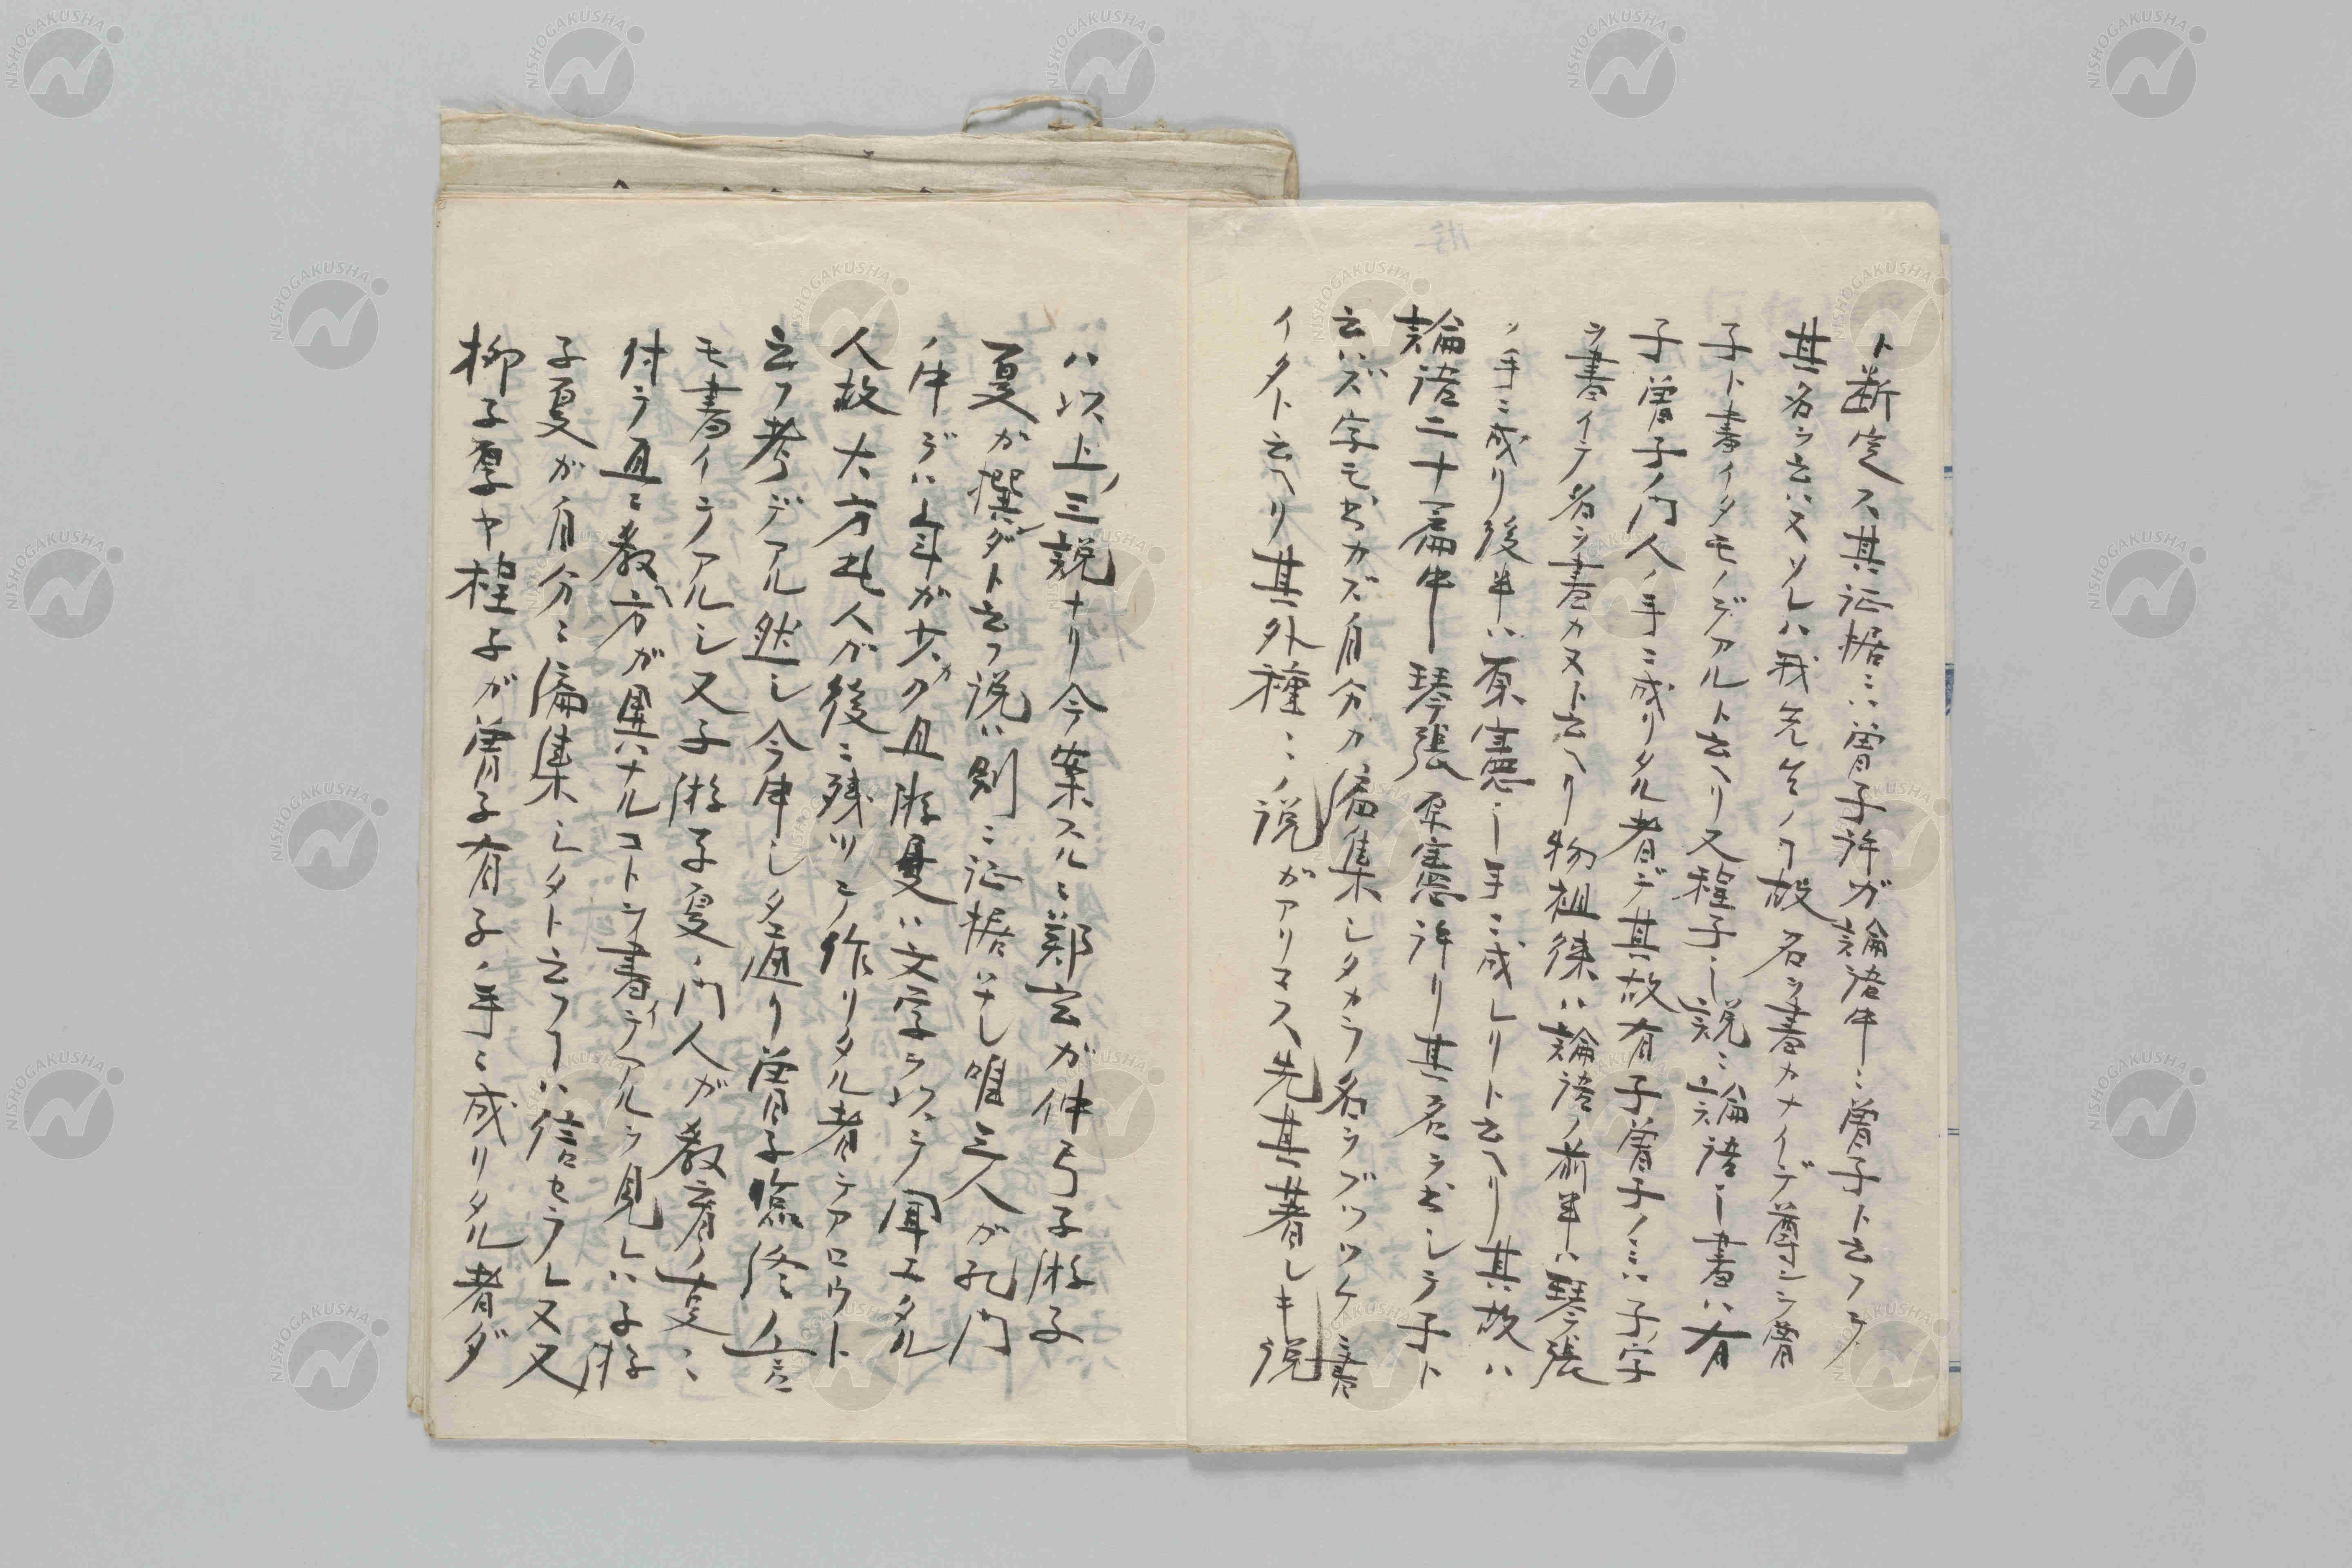 ト断定ス其証据ニハ曽子許ガ論語中ニ曽子ト云フテ
其名ヲ云ハヌソレハ我先生ノヿ故名ヲ書カナイデ尊ンデ曽
子ト書イタモノデアルト云ヘリ又程子ノ説ニ論語ノ書ハ有
子曽子ノ門人ノ手ニ成リタル者デ其故有子曽子ノミハ子ノ字
ヲ書イテ名ヲ書カヌト云ヘリ物徂徠ハ論語ノ前半ハ琴張
ノ手ニ成リ後半ハ原憲ノ手ニ成レリト云ヘリ其故ハ
論語二十篇中ノ琴張原憲許リ其名ヲ出シテ子ト
云ハズ字モ書カズ自分カ編集シタカラ名ヲブツツケニ書
イタト云ヘリ其外種々ノ説ガアリマス先其著シキ説
ハ以上ノ三説ナリ今案スルニ鄭玄ガ仲弓子游子
夏ガ撰ンダト云フ説ハ別ニ証据ハナシ唯三人ガ孔門
ノ中デハ年ガ少カク且游夏ハ文学ヲ以テ聞エタル
人故大方此人ガ後ニ残ツテ作リタル者テアロウト
云フ考デアル然シ今申シタ通リ曽子臨終ノ言
モ書イテアルシ又子游子夏ノ門人ガ教育ノ事ニ
付テ互ニ教ヘ方ガ異ハナルコトヲ書イテアルヲ見レハ子游
子夏ガ自分ニ編集シタト云フヿハ信セラレヌ又
柳子厚ヤ程子ガ曽子有子ノ手ニ成リタル者ダ
NISHOGAKUSHA